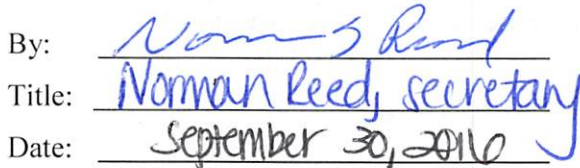 By: Norman S Reed
Title: Norman Reed, secretary
Date: September 30, 2016